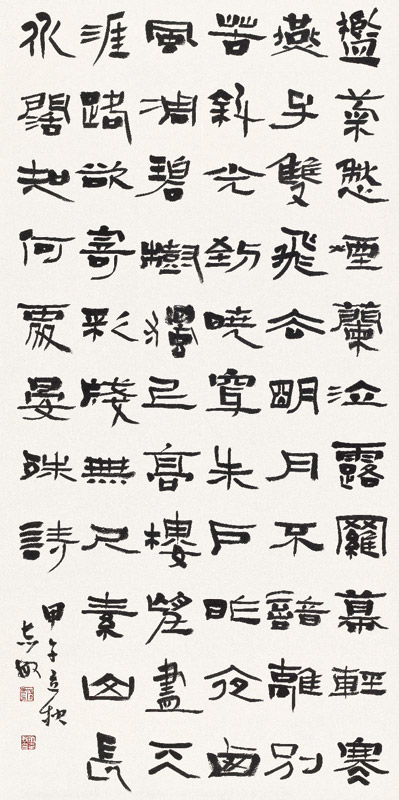 檻菊愁煙蘭泣露羅幕輕寒
燕子雙飛去明月不諳離別
苦斜光到曉穿朱戶昨夜西
風凋碧樹獨上高樓望盡天
涯路欲寄彩牋無尺素山長
水闊知何處晏殊詩
甲午立秋